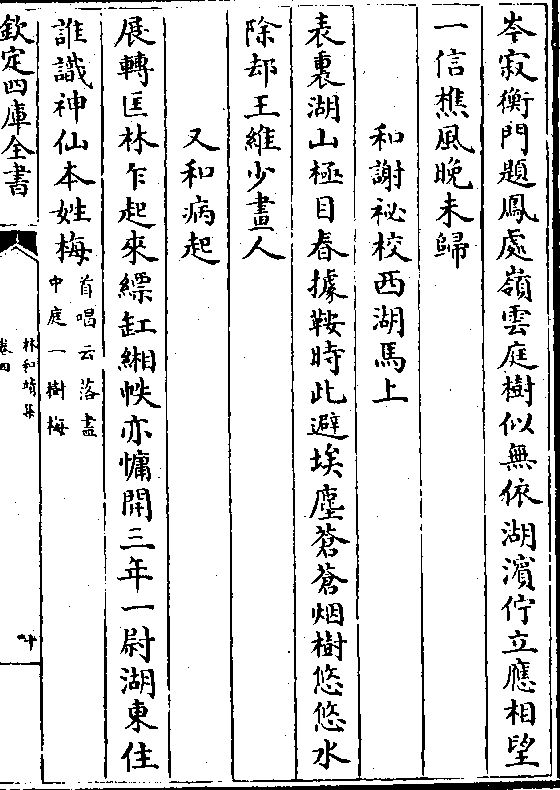 岑寂衡門題鳳處嶺雲庭樹似無依湖濱佇立應相望
一信樵風晚未歸
和謝祕校西湖馬上
表裏湖山極目春據鞍時此避埃塵蒼蒼烟樹悠悠水
除却王維少畫人
又和病起
展轉匡牀乍起來縹缸緗帙亦慵開三年一尉湖東住
誰識神仙本姓梅首唱云落盡中庭一樹梅
欽定四庫全書
林和靖集
卷四
十